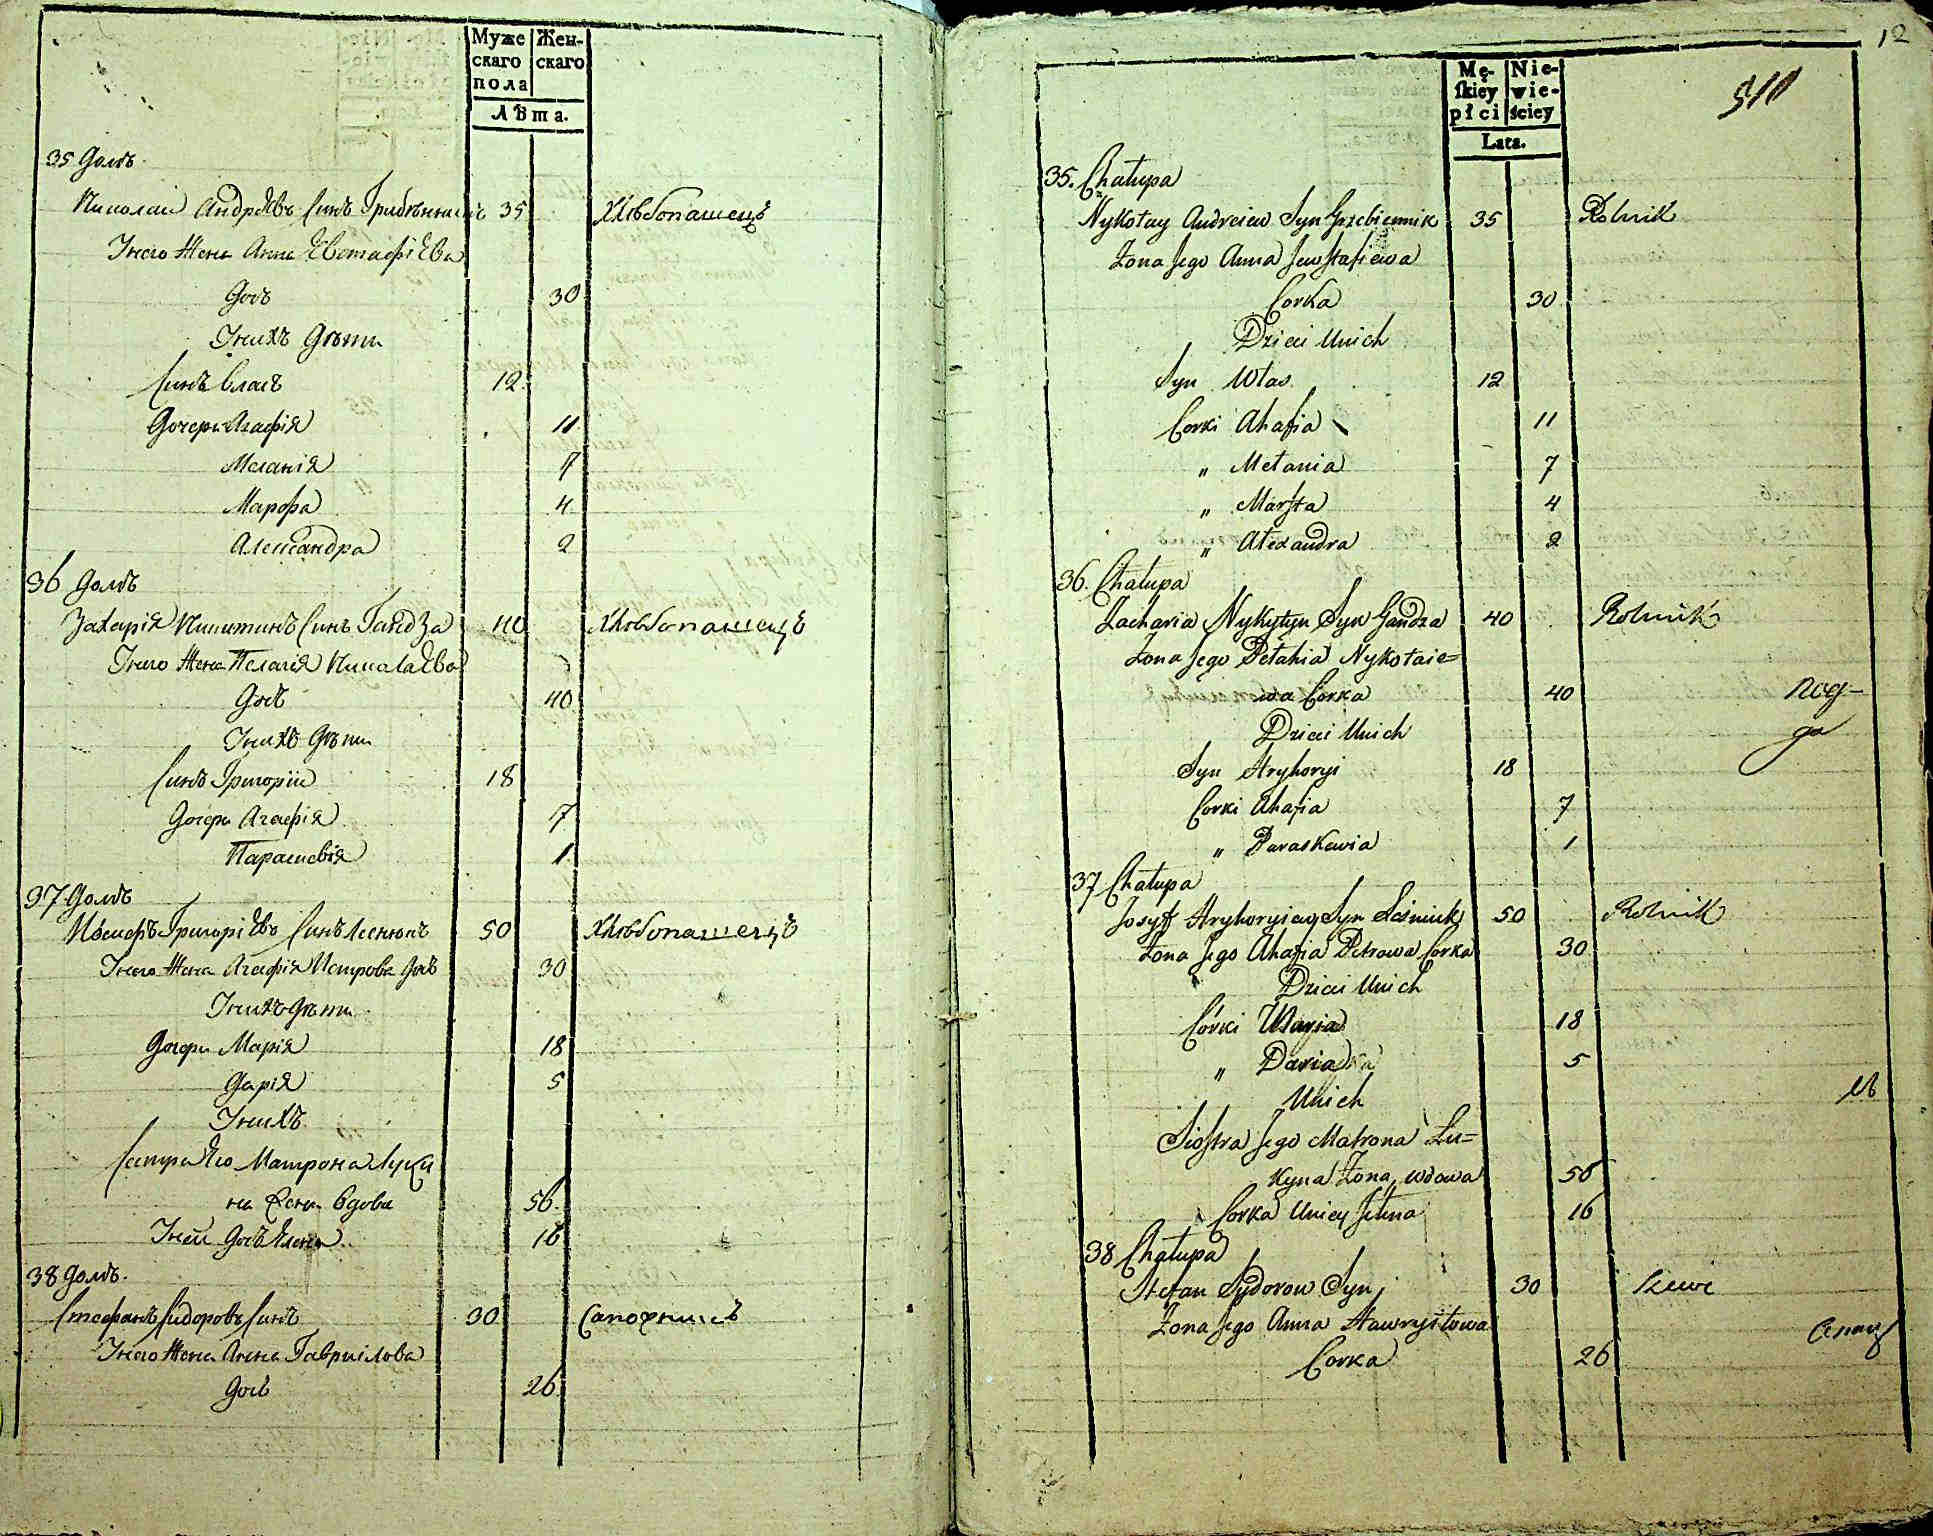 Муже
скаго
пола
Жен-
скаго
Лѣта.
35 Домъ
Николай Андрѣевъ Синъ Грибѣнникъ 35 Хлѣбопашецъ
У него Жена Анна Евстафіева
Дочь 30
У нихъ Дѣти
Синъ Власъ 12
Дочери Агафія 11
Меланія 7
Марѳа 4
Александра 2
36 Домъ
Захарія Никитинъ Синъ Гандза 40 Хлѣбопашецъ
У него Жена Пелагія Николаева
Дочь 40
У нихъ Дѣти
Синъ Григорій 18
Дочери Агафія 7
Параскевія 1
37 Домъ
Іосифъ Григоріевъ Синъ Леснюкъ 50 Хлѣбопашецъ
У него Жена Агафія Петрова Дочь 30
У нихъ Дѣти
Дочери Марія 18
Дарія 5
У нихъ
Сестра Его Матрона Луки
на Жена вдова 56
У ней Дочь Елена 16
38 Домъ
Стефанъ Сидоровъ Синъ 30 Сапожникъ
У него Жена Анна Гавриілова
Дочь 26
12
Mę-
skiey
płci
Nie-
wie-
ściey
Lata.
35. Chałupa
Nykołay Andreiew Syn Grzebiennik 35 Rolnik
Żona Jego Anna Jewstafiewa
Corka 30
Dzieci Unich
Syn Włas 12
Corki Ahafia 11
" Mełania 7
" Marfta 4
" Ałexandra 2
36. Chałupa
Zacharia Nykytyn Syn Gandza 40 Rolnik
Żona Jego Pełahia Nykołaie=
wa Corka 40
Dzieci Unich
Syn Hryhoryi 18
Corki Ahafia 7
" Paraskewia 1
37 Chałupa
Josyf Hryhoryiew Syn Leśniuk 50 Rolnik
Żona Jego Ahafia Petrowa Corka 30
Dzieci Unich
Córki Marya 18
" Daria 5
Unich
Siostra Jego Matrona Łu=
kyna Żona, wdowa 56
Corka Uniey Jełena 16
38 Chałupa
Stefan Sydorow Syn 30 Szewc
Żona Jego Anna Hawryiłowa
Corka 26